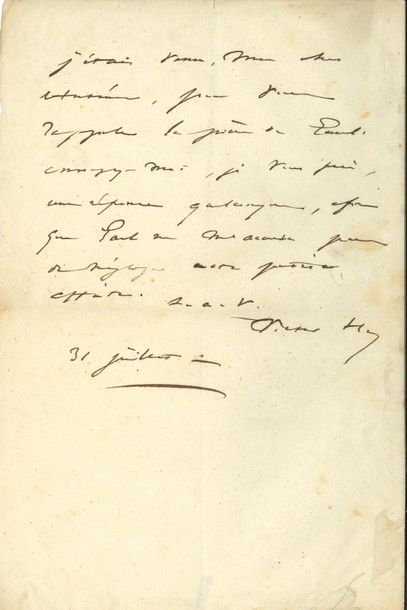 j'étais venu, mon cher
pour vous
rappeler la pièce de Paul.
envoyez-moi, je vous prie,
une réponse quelconque, afin
que Paul ne m'accuse pas
de négliger
affaire. t. à v.
Victor Hugo
31 juillet